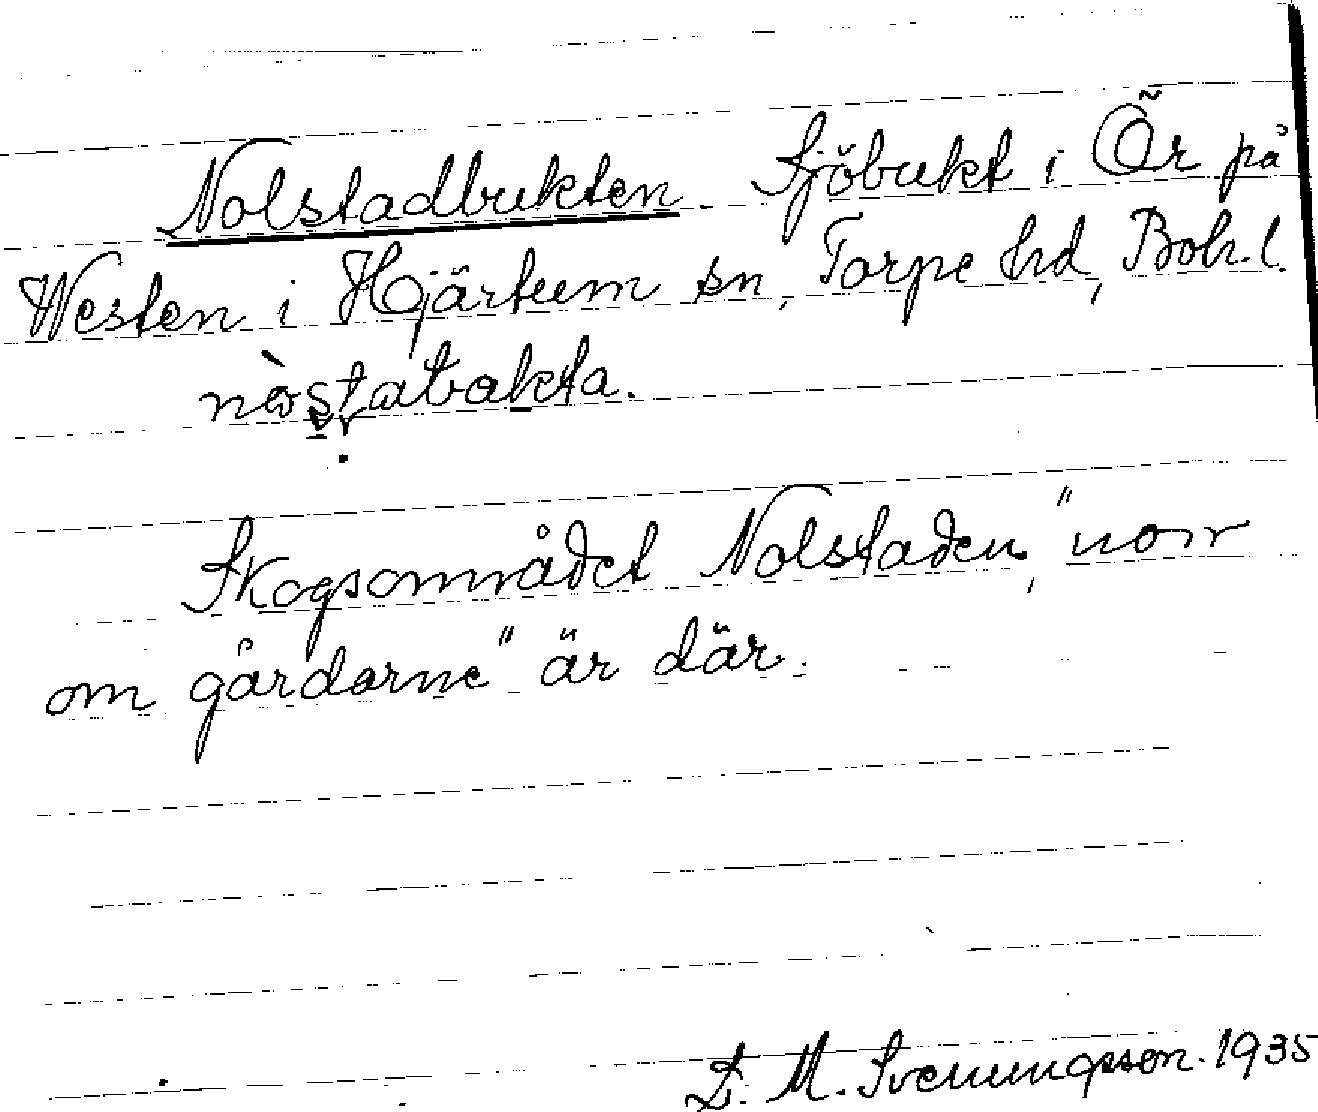 Nolstadbukten. Sjöbukt i Ör på
Westen i Hjärtum sn, Torpe hd, Boh. l.
Skogsområdet Nolstaden, "norr
om gårdarne" är där.
D. M. Svenungsson. 1935